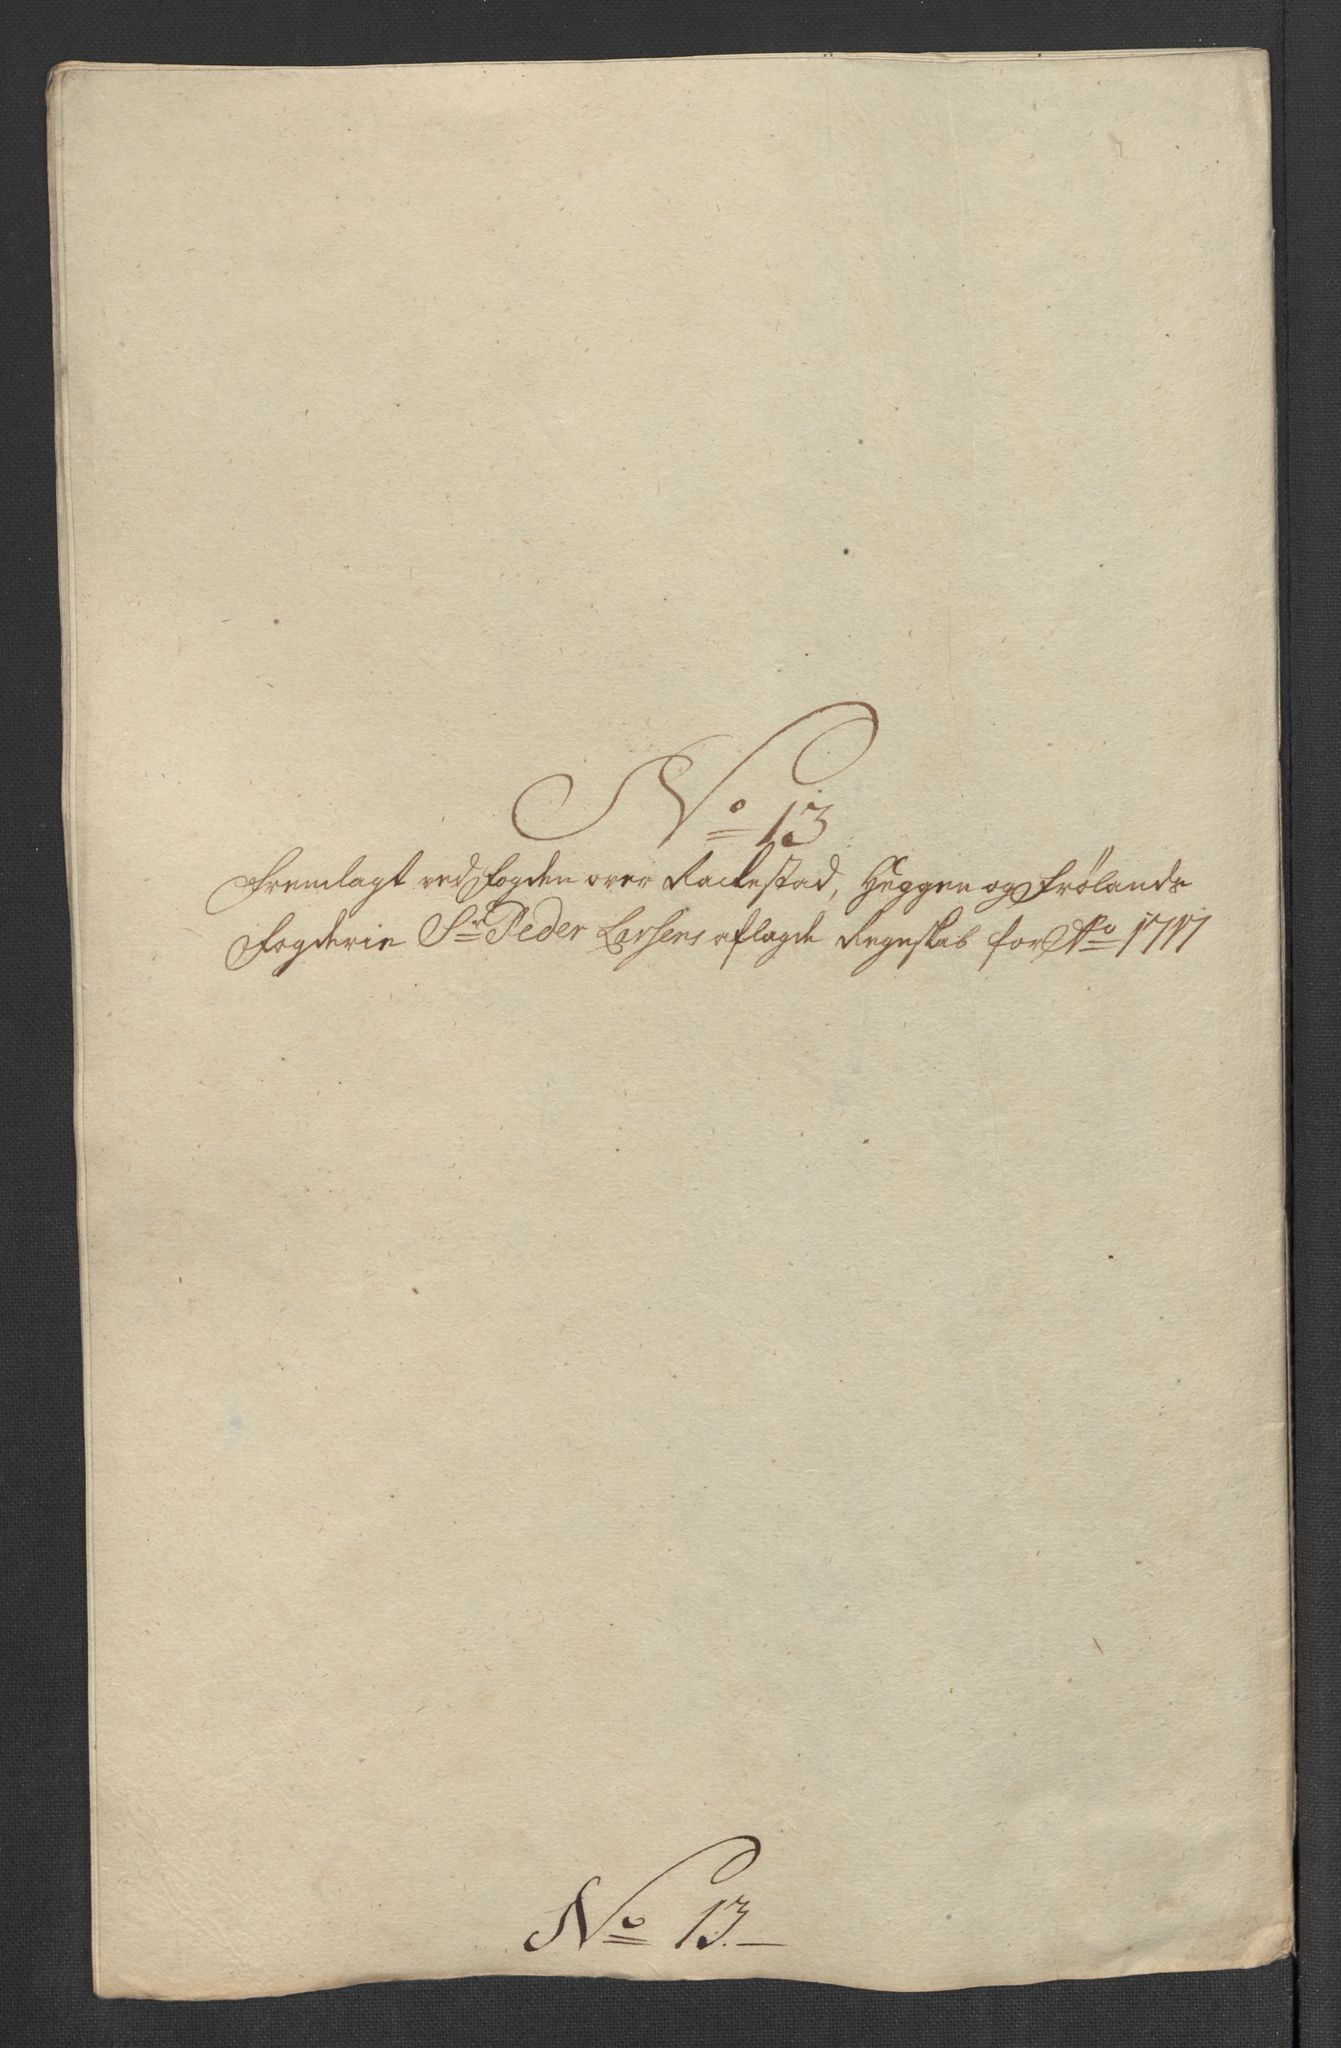 No 13
Fremlagt ved fogden over Rackestad, Heggen og Frølands
fogderie Sr Peder Larsens aflagde Regnskab for Ao 1717
No 13